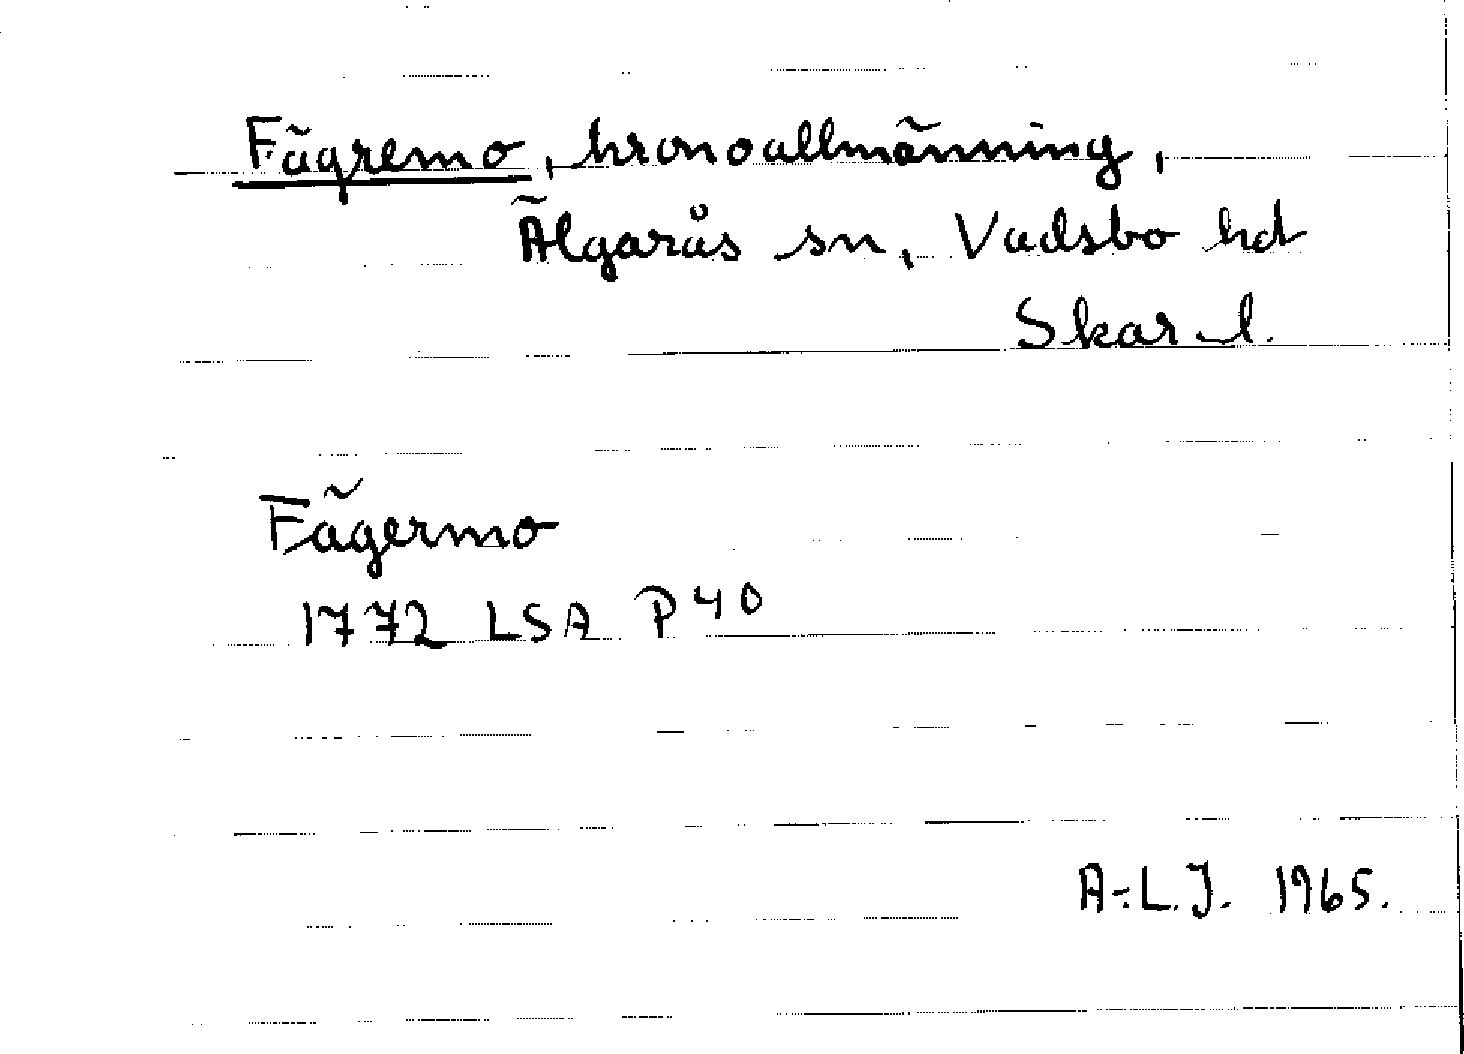 Fägremo, kronoallmänning,
Älgarås sn, Vadsbo hd
Skar. l.
Fägermo
1772 LSA P40
A-L.J. 1965.